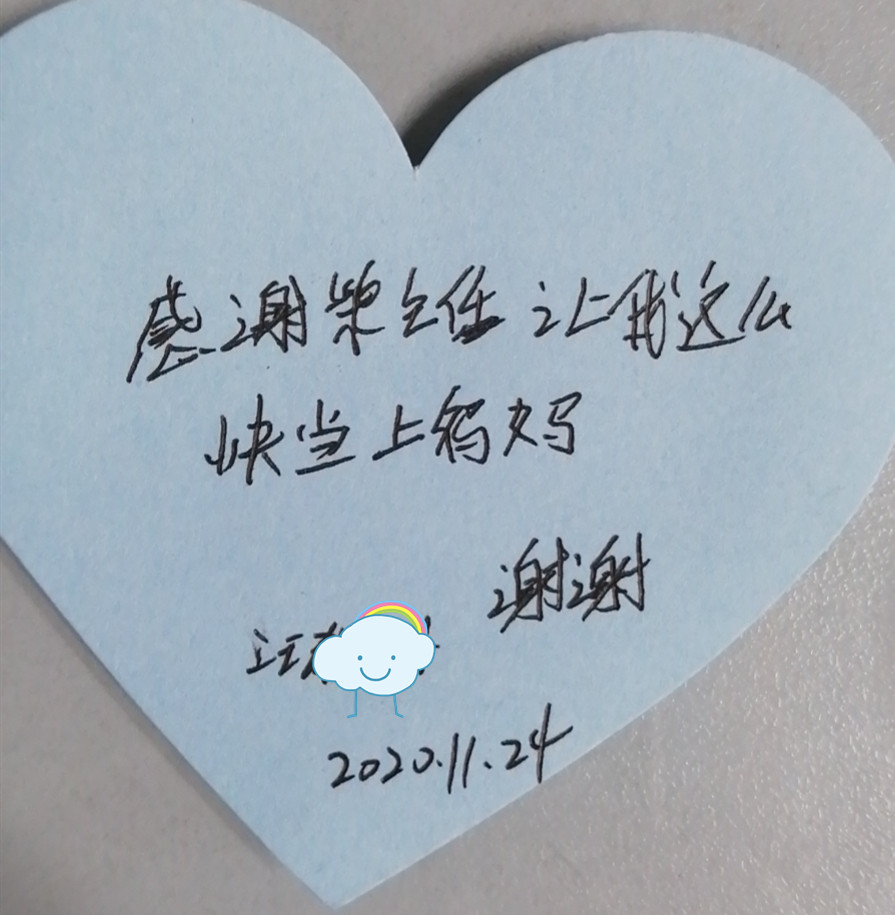 感谢柴主任让我这么
快当上妈妈
谢谢
汪
2020.11.24